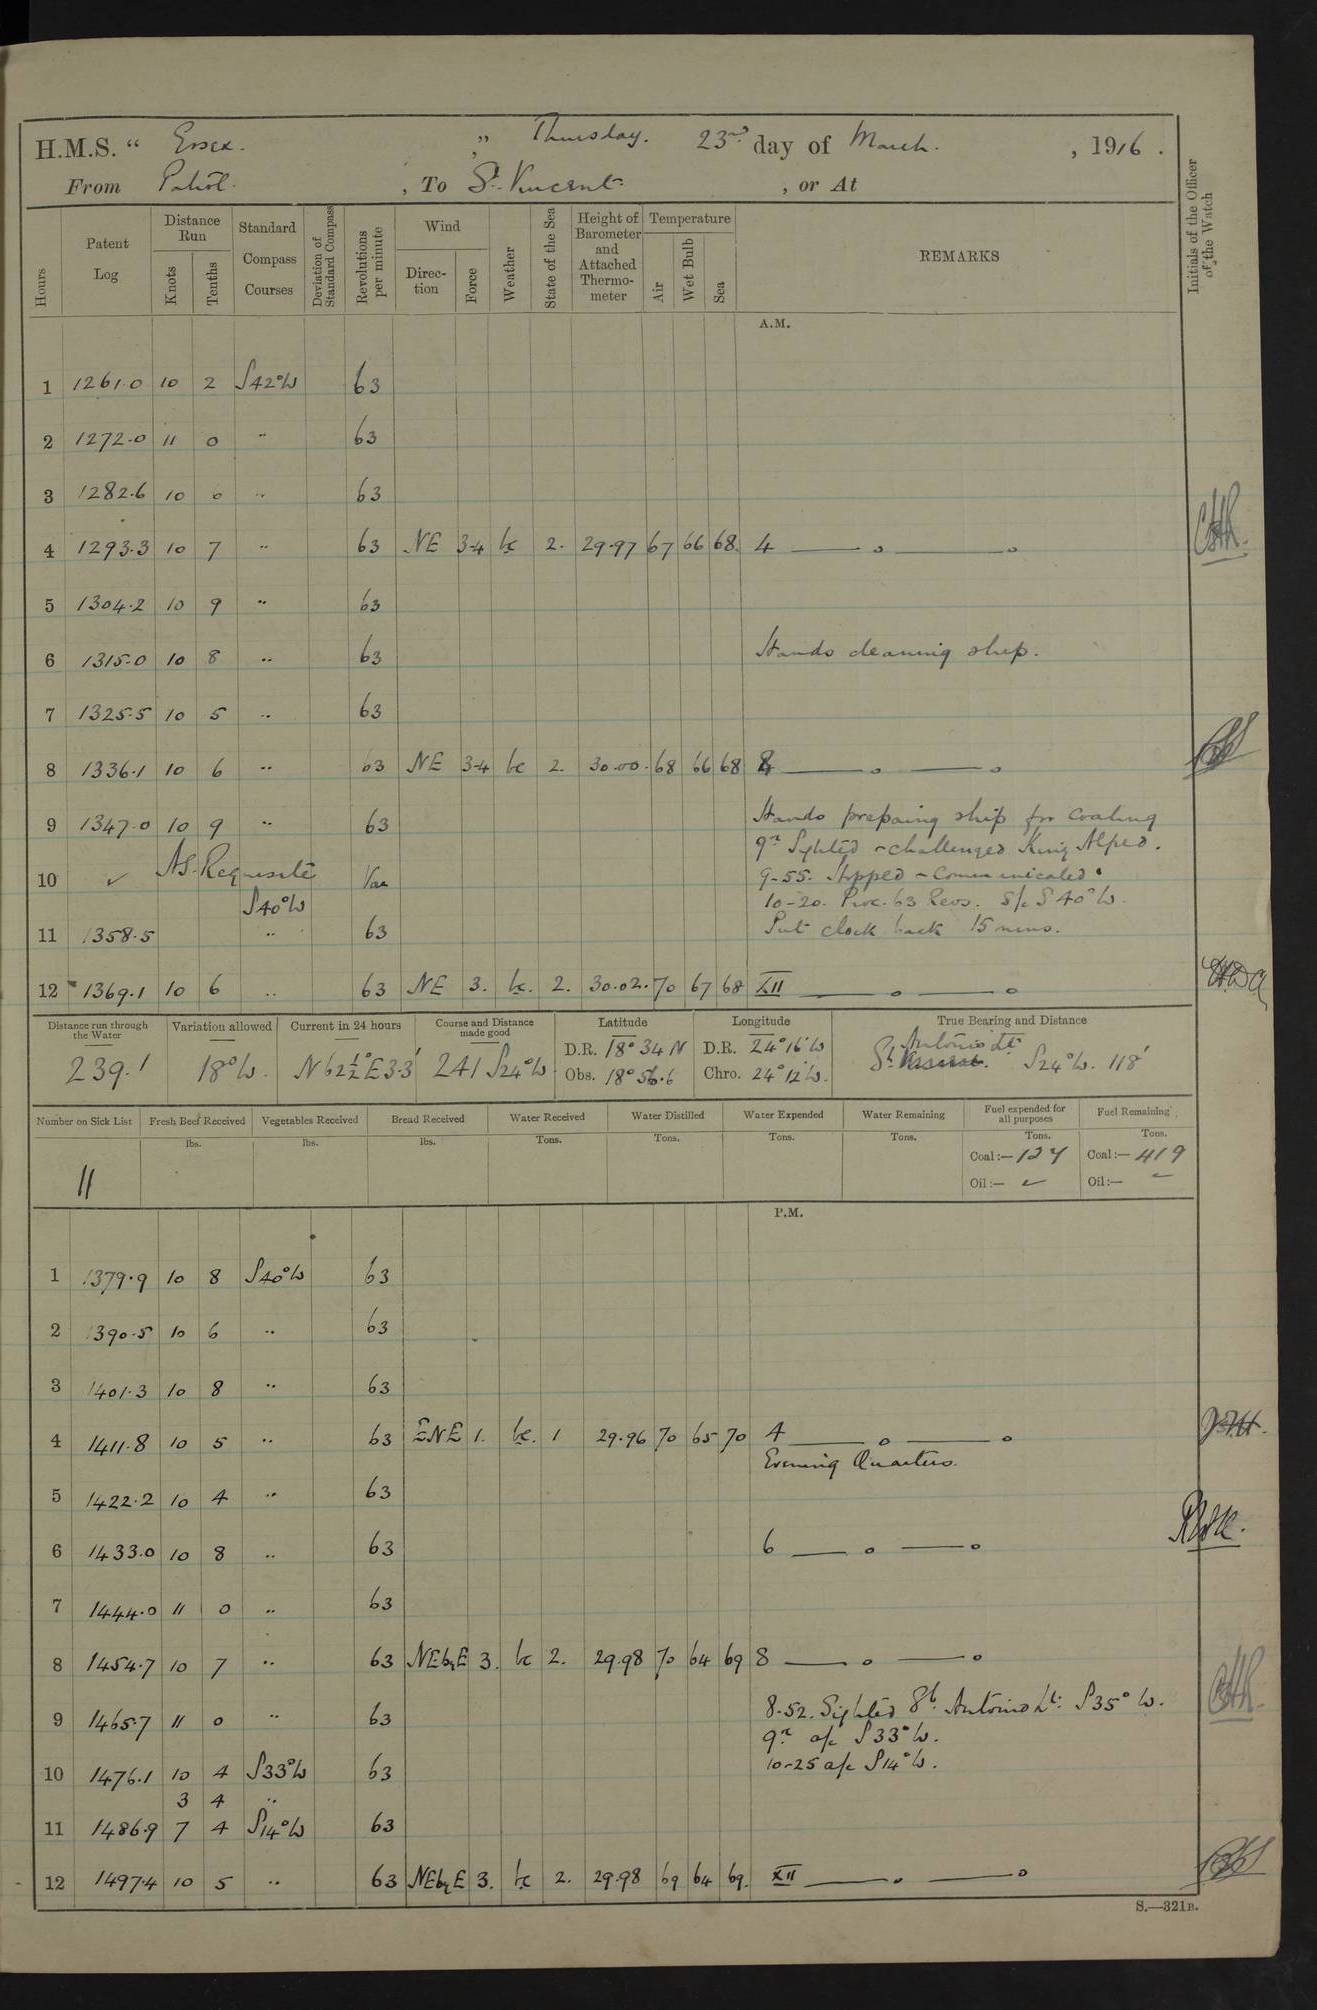 H.M.S. “ Essex. ” Thursday. 23rd day of March. , 1916 .
From Patrol. , To St. Vincent. , or At
Hours Patent Log Distance Run Knots Tenths Standard Compass Courses Deviation of Standard Compass Revolutions per minute Wind Direction Force Weather State of the Sea Height of Barometer and Attached Thermometer Temperature Air Wet Bulb Sea REMARKS Initials of the Officer of the Watch
A.M.
1 1261.0 10 2 S42°W 63
2 1272.0 11 0 " 63
3 1282.6 10 0 " 63
4 1293.3 10 7 " 63 NE 3-4 bc 2. 29.97 67 66 68 4 —— o —— o
5 1304.2 10 9 " 63
6 1315.0 10 8 " 63 Hands cleaning ship.
7 1325.5 10 5 " 63
8 1336.1 10 6 " 63 NE 3-4 bc 2. 30.00 68 66 68 8 —— o —— o
9 1347.0 10 9 " 63 Hands prepaing ship for Coaling
9.n Sighted & challenged King Alfred.
10 ✓ As Requisite Var 9-55. Stopped & Communicated.
S40°W 10-20. Proc. 63 Revs. S/c S 40°W.
11 1358.5 " 63 Put clock back 15 mins.
12 1369.1 10 6 " 63 NE 3. bc. 2. 30.02. 70 67 68 XII —— o —— o
Distance run through the Water Variation allowed Current in 24 hours Course and Distance made good Latitude Longitude True Bearing and Distance
239.1 18°W. N62½°E 3.3' 241 S24°W. D.R. 18° 34 N D.R. 24° 16' W St. Antonio Lt. S24°W. 118'
Obs. 18° 56.6 Chro. 24° 12' W.
Number on Sick List Fresh Beef Received Vegetables Received Bread Received Water Received Water Distilled Water Expended Water Remaining Fuel expended for all purposes Fuel Remaining
lbs. lbs. lbs. Tons. Tons. Tons. Tons. Tons. Tons.
11 Coal :— 127 Coal :— 419
Oil :— ✓ Oil :— ✓
P.M.
1 1379.9 10 8 S40°W 63
2 1390.5 10 6 " 63
3 1401.3 10 8 " 63
4 1411.8 10 5 " 63 ENE 1. bc. 1 29.96 70 65 70 4 —— o —— o
Evening Quarters.
5 1422.2 10 4 " 63
6 1433.0 10 8 " 63 6 —— o —— o
7 1444.0 11 0 " 63
8 1454.7 10 7 " 63 NEbyE 3. bc 2. 29.98 70 64 69 8 —— o —— o
8.52. Sighted St. Antonio Lt: S35°W.
9 1465.7 11 0 " 63 9.n a/c S33°W.
10 1476.1 10 4 S33°W 63 10-25 a/c S14°W.
3 4 "
11 1486.9 7 4 S14°W 63
12 1497.4 10 5 " 63 NEbyE 3. bc 2. 29.98 69 64 69. XII —— o —— o
S.—321B.